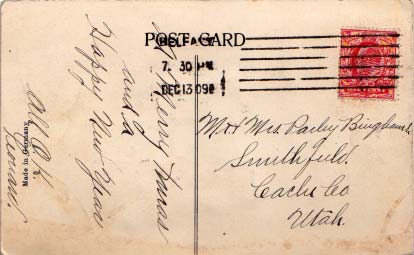 POST CARD
BELFAST
7. 30 PM
DEC 13 09
A Merry Xmas
and a
Happy New Year
Made in Germany
Mr & Mrs. Parley Bingham
Smithfield.
Cache Co
Utah.